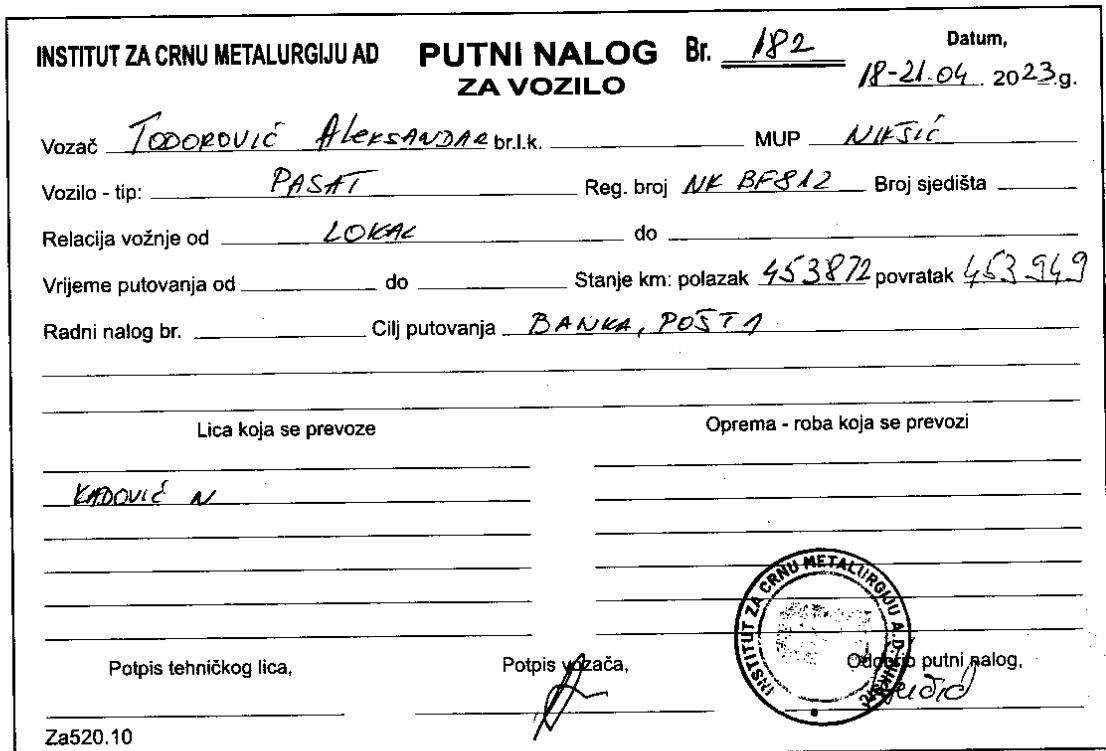 INSTITUT ZA CRNU METALURGIJU AD PUTNI NALOG Br. 182 Datum,
ZA VOZILO 18-21.04. 2023.g.
Vozač TODOROVIĆ ALEKSANDAR br.l.k. MUP NIKŠIĆ
Vozilo - tip: PASAT Reg. broj NK BF812 Broj sjedišta
Relacija vožnje od LOKAL do
Vrijeme putovanja od do Stanje km: polazak 453872 povratak 453949
Radni nalog br. Cilj putovanja BANKA, POŠTA
Lica koja se prevoze Oprema - roba koja se prevozi
KADOVIĆ N
INSTITUT ZA CRNU METALURGIJU A.D. NIKŠIĆ
Potpis tehničkog lica, Potpis vozača, Odobrio putni nalog,
Za520.10